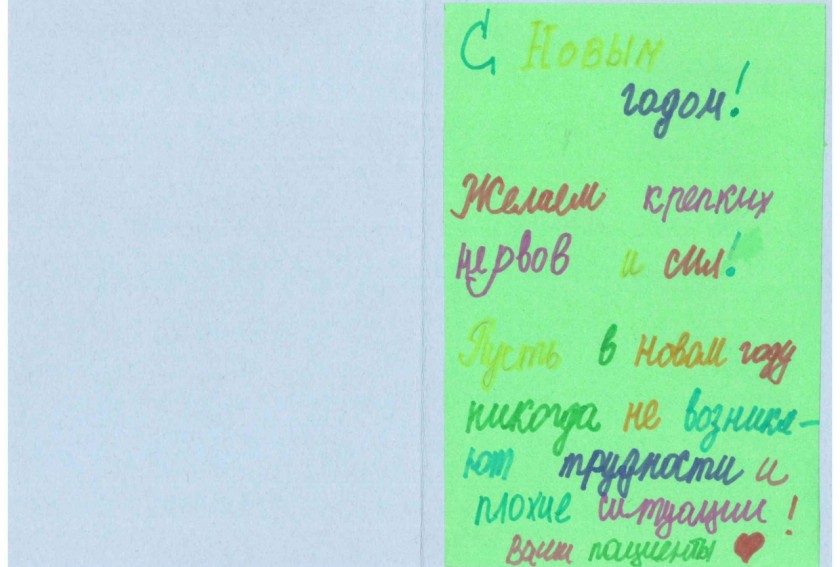 С Новым
годом!
Желаем крепких
нервов и сил!
Пусть в новом году
никогда не возника-
ют трудности и
плохие ситуации!
Ваши пациенты